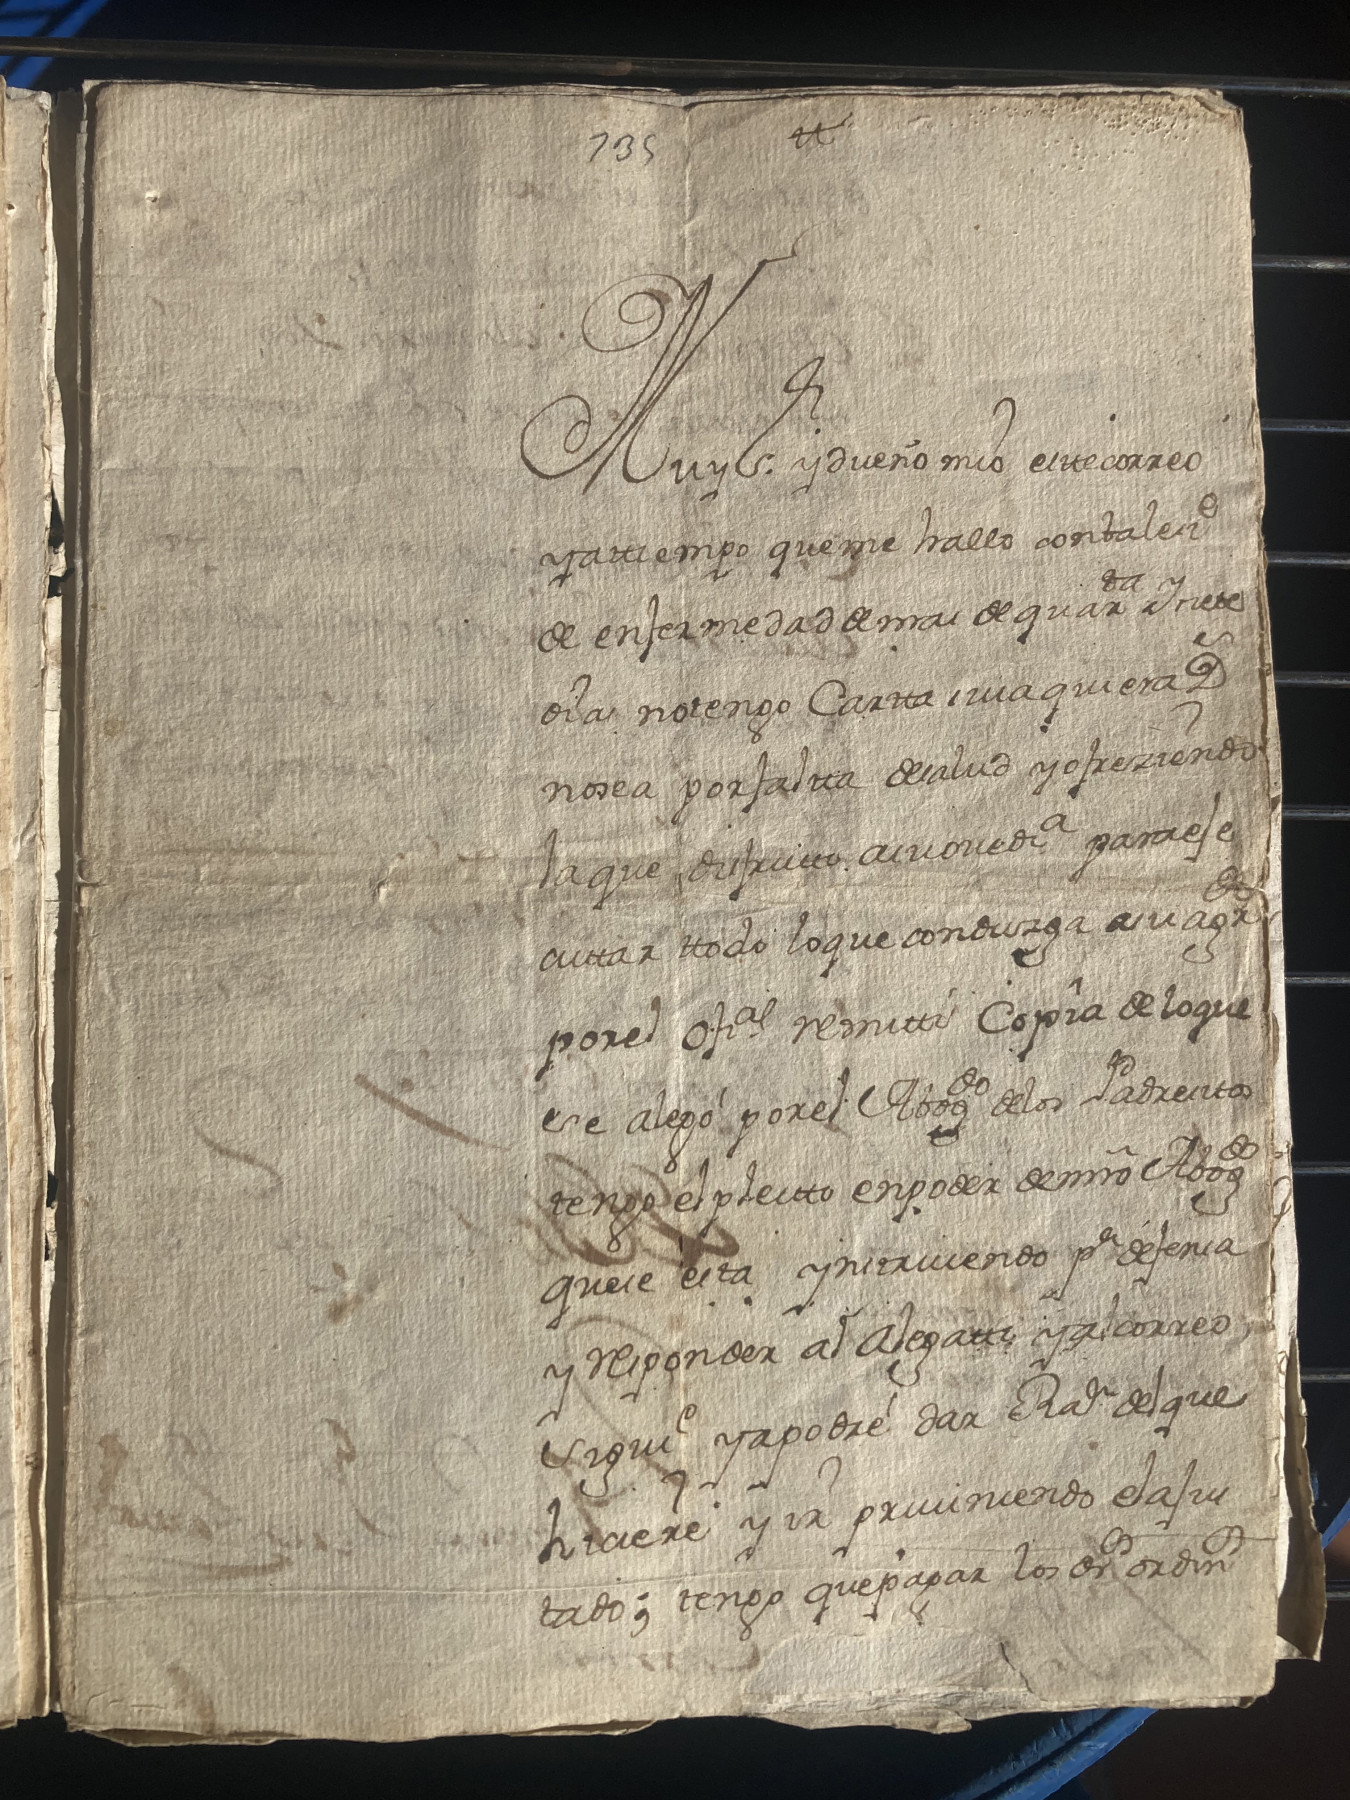 735
Muy Sr. y dueño mio este correo
ya ttiempo que me hallo conbaleci.e
de enfermedad de mas de quar.ta y siete
dias no tengo Cartta suia quiera Ds
no sea por faltta de salud y ofreziendo
la que disfrutto a su ovedi.a para eje
cuttar ttodo lo que conduzga a su agr.do
por el ofi.al remitti Copia de lo que
se alegó por el Abog.do de los Padresitos
tengo el pleitto en poder de mi Abog.do
que se esta ynstruiendo p.a defensa
y responder al Alegatto y al correo
sigui.e ya podré dar Raz.n del que
hiciere y ir preuiniendo el
tado; tengo que pagar los dr.os ordin.os